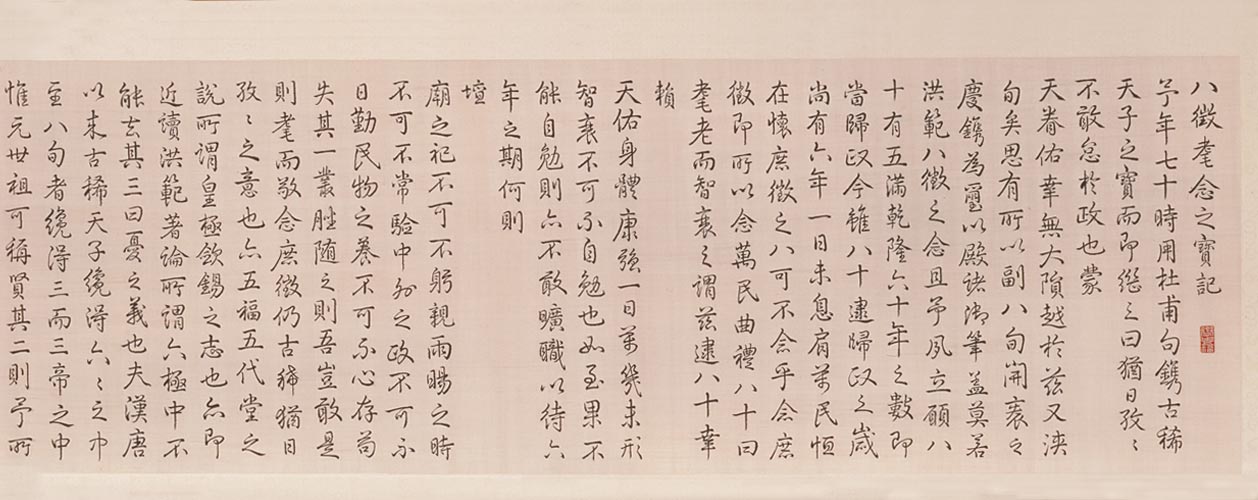 八徵耄念之寶記
予年七十時用杜甫句鐫古稀
天子之寶而即繼之曰猶日孜〻
不敢怠於政也蒙
天眷佑幸無大隕越於茲又浹
旬矣思有所以副八旬開袠之
慶鐫為璽以殿諸御筆蓋莫若
洪範八徵之念且予夙立願八
十有五滿乾隆六十年之數即
當歸政今雖八十逮歸政之歲
尚有六年一日未息肩萬民恒
在懷庶徵之八可不念乎念庶
徵即所以念萬民曲禮八十曰
耄老而智衰之謂茲逮八十幸
賴
天佑身體康強一日萬幾未形
智衰不可不自勉也如至果不
能自勉則亦不敢曠職以待六
年之期何則
壇
廟之祀不可不躬親雨暘之時
不可不常驗中外之政不可不
日勤民物之養不可不心存苟
失其一叢脞随之則吾豈敢是
則耄而敬念庶徵仍古稀猶日
孜〻之意也亦五福五代堂之
說所謂皇極歛錫之志也亦即
近讀洪範著論所謂六極中不
能去其三曰憂之義也夫漢唐
以來古稀天子纔得六〻之中
至八旬者纔得三而三帝之中
惟元世祖可稱賢其二則予所